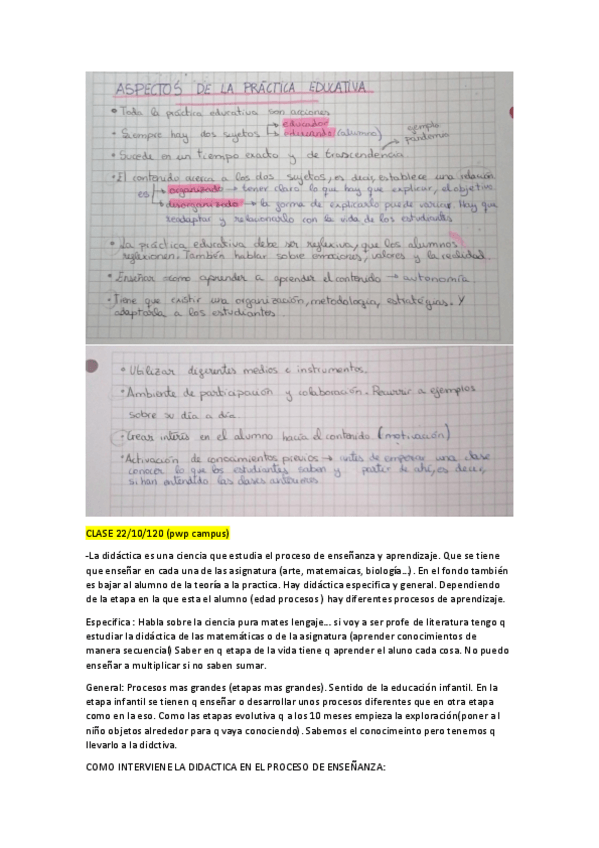 ASPECTOS DE LA PRÁCTICA EDUCATIVA
• Toda la práctica educativa son acciones
• Siempre hay dos sujetos → educador
→ educando (alumno)
ejemplo pandemia
• Sucede en un tiempo exacto y de transcendencia
• El contenido acerca a los dos sujetos, es decir, establece una relación
es → organizado → tener claro lo que hay que explicar, el objetivo
→ desorganizado → la forma de explicarlo puede variar. Hay que
readaptar y relacionarlo con la vida de los estudiantes
• La práctica educativa debe ser reflexiva, que los alumnos
reflexionen. También hablar sobre emociones, valores y la realidad.
• Enseñar como aprender a aprender el contenido → autonomía.
• Tiene que existir una organización, metodología, estrategias. Y
adaptarla a los estudiantes.
• Utilizar diferentes medios e instrumentos.
• Ambiente de participación y colaboración. Recurrir a ejemplos
sobre su día a día.
• Crear interés en el alumno hacia el contenido (motivación)
• Activación de conocimientos previos → antes de empezar una clase
conocer lo que los estudiantes saben y partir de ahí, es decir,
si han entendido las clases anteriores
CLASE 22/10/120 (pwp campus)
-La didáctica es una ciencia que estudia el proceso de enseñanza y aprendizaje. Que se tiene
que enseñar en cada una de las asignatura (arte, matemaicas, biología...). En el fondo también
es bajar al alumno de la teoría a la practica. Hay didáctica especifica y general. Dependiendo
de la etapa en la que esta el alumno (edad procesos ) hay diferentes procesos de aprendizaje.
Especifica : Habla sobre la ciencia pura mates lengaje... si voy a ser profe de literatura tengo q
estudiar la didáctica de las matemáticas o de la asignatura (aprender conocimientos de
manera secuencial) Saber en q etapa de la vida tiene q aprender el aluno cada cosa. No puedo
enseñar a multiplicar si no saben sumar.
General: Procesos mas grandes (etapas mas grandes). Sentido de la educación infantil. En la
etapa infantil se tienen q enseñar o desarrollar unos procesos diferentes que en otra etapa
como en la eso. Como las etapas evolutiva q a los 10 meses empieza la exploración(poner al
niño objetos alrededor para q vaya conociendo). Sabemos el conocimeinto pero tenemos q
llevarlo a la didctiva.
COMO INTERVIENE LA DIDACTICA EN EL PROCESO DE ENSEÑANZA: